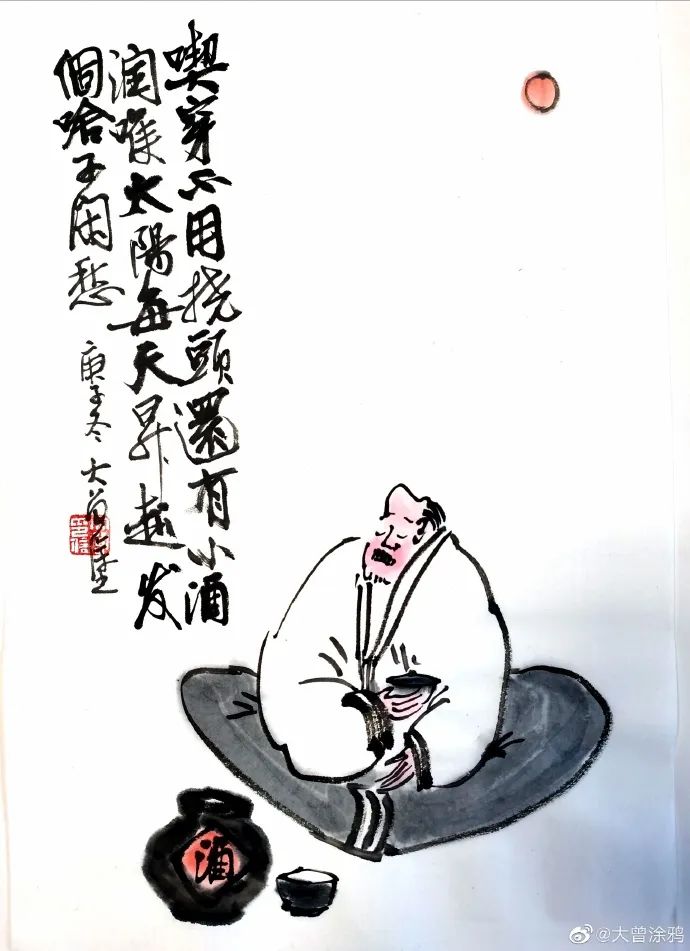 喫穿不用挠頭還有小酒
润喉太陽每天昇起发
個啥子闲愁
庚子冬大曾
酒
@大曾涂鸦